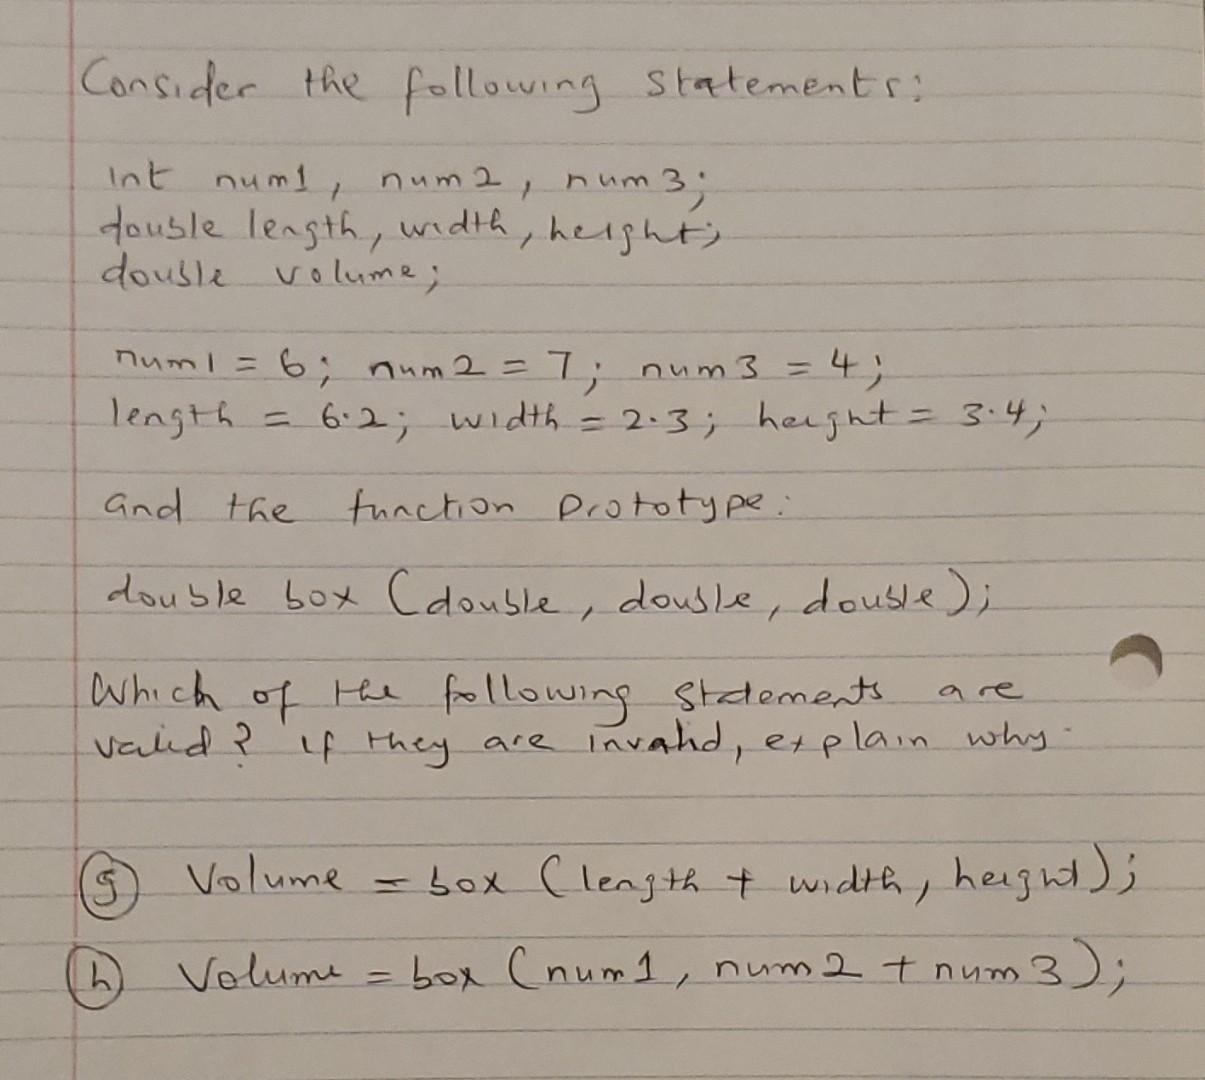 Consider the following statements:
int num1, num2, num3;
double length, width, height;
double volume;
num1 = 6; num2 = 7; num3 = 4;
length = 6.2; width = 2.3; height = 3.4;
and the function prototype:
double box (double, double, double);
Which of the following statements are
valid? if they are invalid, explain why.
(g) Volume = box (length + width, height);
(h) Volume = box (num1, num2 + num3);